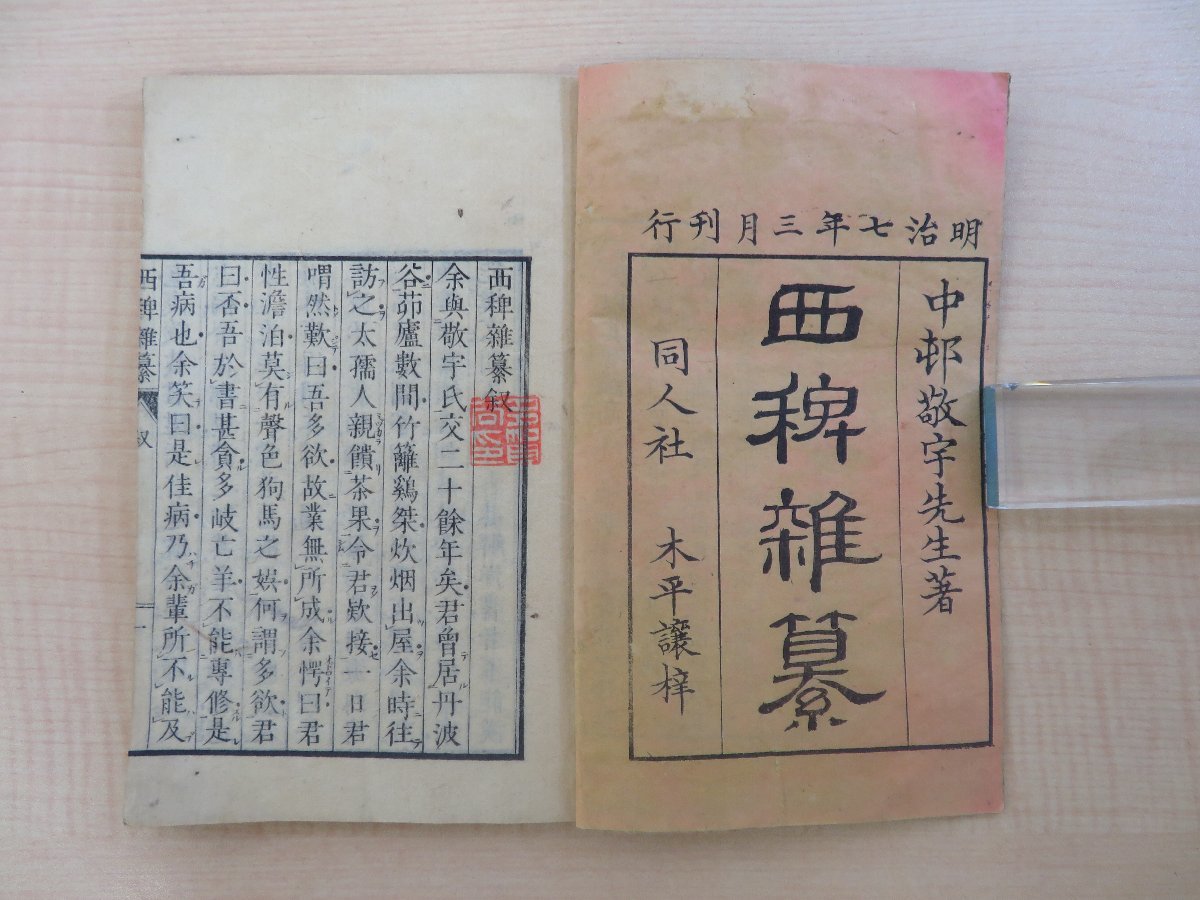 明治七年三月刊行
中邨敬宇先生著
西稗雜纂
同人社 木平讓梓
西稗雜纂叙
余與敬宇氏交二十餘年矣君曾居丹波
谷茆廬數間竹籬鷄桀炊烟出屋余時往
訪之太孺人親饋茶果令君欵接一日君
喟然歎曰吾多欲故業無所成余愕曰君
性澹泊莫有聲色狗馬之娯何謂多欲君
曰否吾於書甚貪多岐亡羊不能專修是
吾病也余笑曰是佳病乃余輩所不能及
西稗雜纂 叙 一